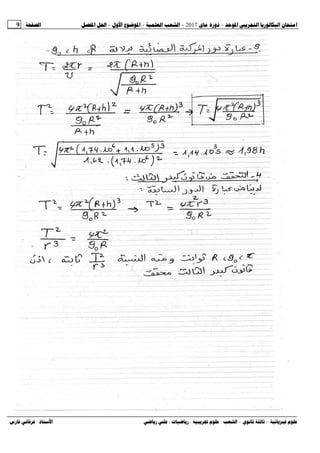 امتحان البكالوريا التجريبي الموحد - دورة ماي 2017 - الشعب العلمية - الموضوع الأول - الحل المفصل الصفحة 9
3 - عبارة دور المركبة الفضائية بدلالة R ، h ، g₀ -
T = 2πr / v = 2π(R+h) / √(g₀R² / (R+h))
T² = 4π²(R+h)² / (g₀R² / (R+h)) = 4π²(R+h)³ / g₀R² → T = √(4π²(R+h)³ / g₀R²)
T = √(4π²(1,74.10⁶ + 1,1.10⁵)³ / 1,62.(1,74.10⁶)²) = 1,14.10³s ≈ 1,98h
4 - التحقق من قانون كبلر الثالث :
لدينا من عبارة الدور السابقة :
T² = 4π²(R+h)³ / g₀R² → T² = 4π²r³ / g₀R²
T² / r³ = 4π² / g₀R
π ، g₀ ، R ثوابت ومنه النسبة T²/r³ ثابتة ، اذن
قانون كبلر الثالث محقق
علوم فيزيائية - ثالثة ثانوي - الشعب : علوم تجريبية ، رياضيات ، تقني رياضي الأستاذ : فرقاني فارس